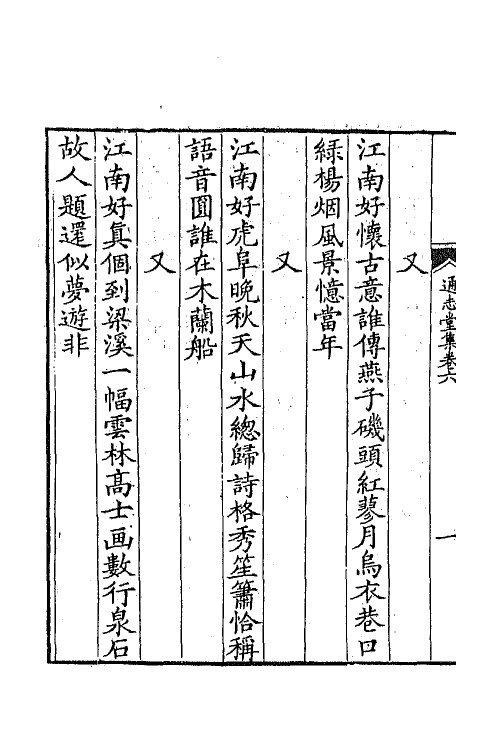 通志堂集卷六
一
又
江南好懷古意誰傳燕子磯頭紅蓼月烏衣巷口
綠楊烟風景憶當年
又
江南好虎阜晚秋天山水總歸詩格秀笙簫恰稱
語音圓誰在木蘭船
又
江南好真個到梁溪一幅雲林高士画數行泉石
故人題還似夢遊非